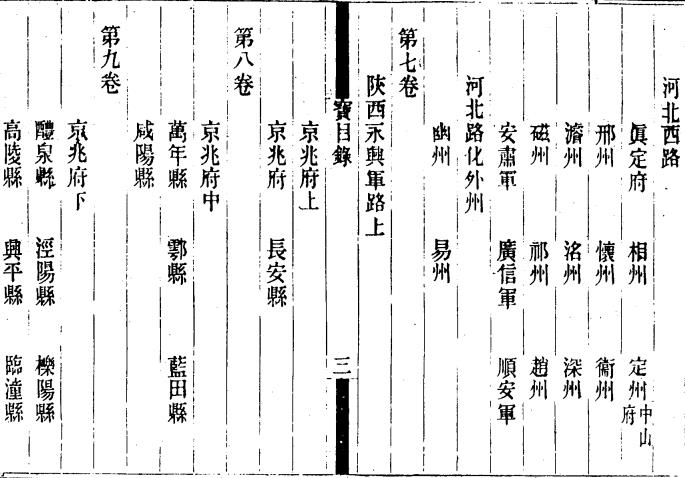 河北西路
眞定府 相州 定州中山府
邢州 懷州 衞州
濬州 洺州 深州
磁州 祁州 趙州
安肅軍 廣信軍 順安軍
河北路化外州
幽州 易州
第七卷
陝西永興軍路上
寶目錄 三
京兆府上
京兆府 長安縣
第八卷
京兆府中
萬年縣 鄠縣 藍田縣
咸陽縣
第九卷
京兆府下
醴泉縣 涇陽縣 櫟陽縣
高陵縣 興平縣 臨潼縣